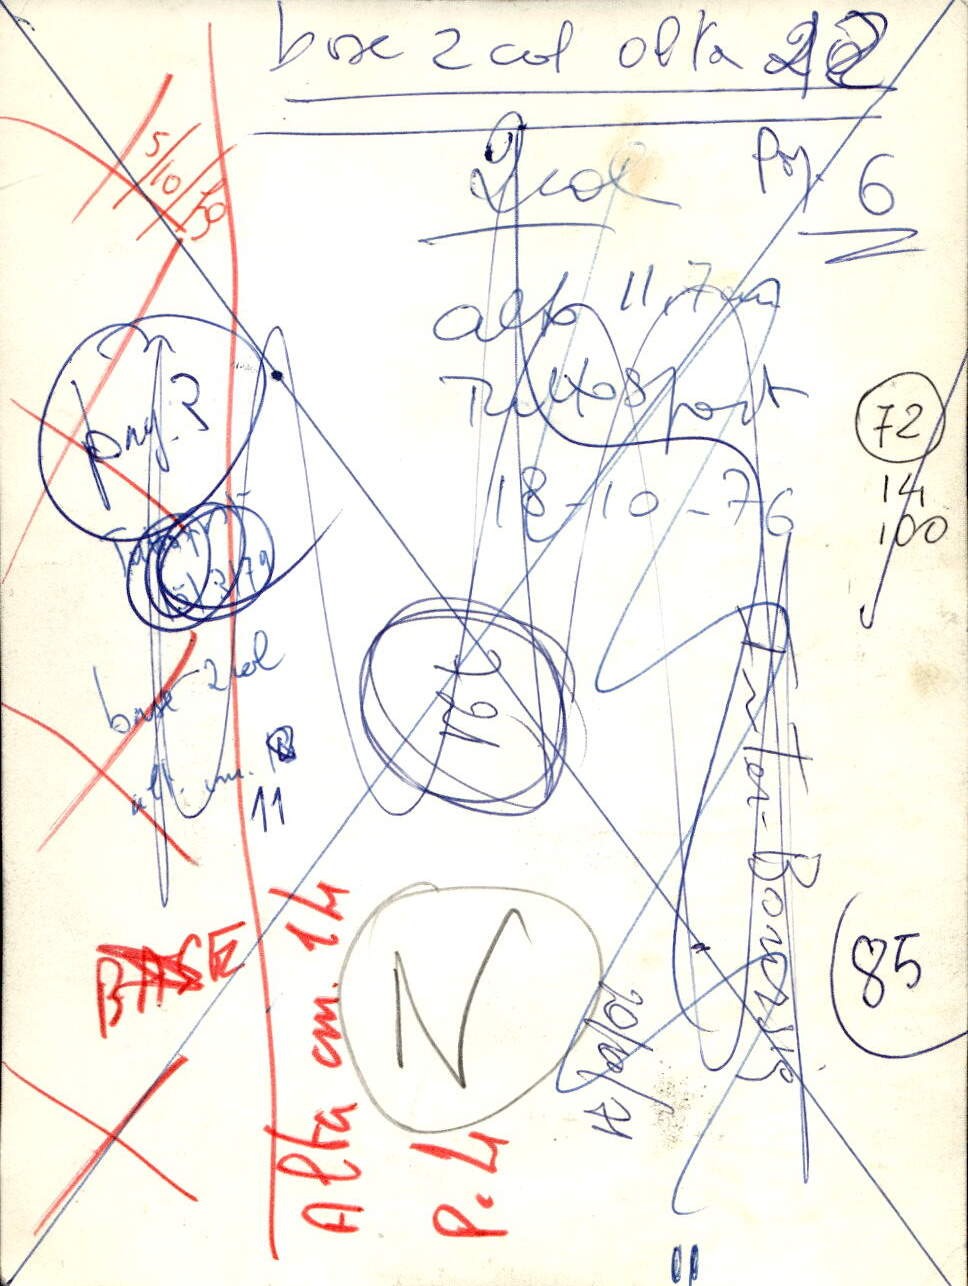 base 2 col alta 22
2 col
Pag 6
alta 11,7 cm
Tuttosport
18-10-76
5/10/70
pag. 3
72
14,
100
base 2 col
alt. cm.
11
N
85
BASE
Alta cm. 14
P. 4
20/10/71
11